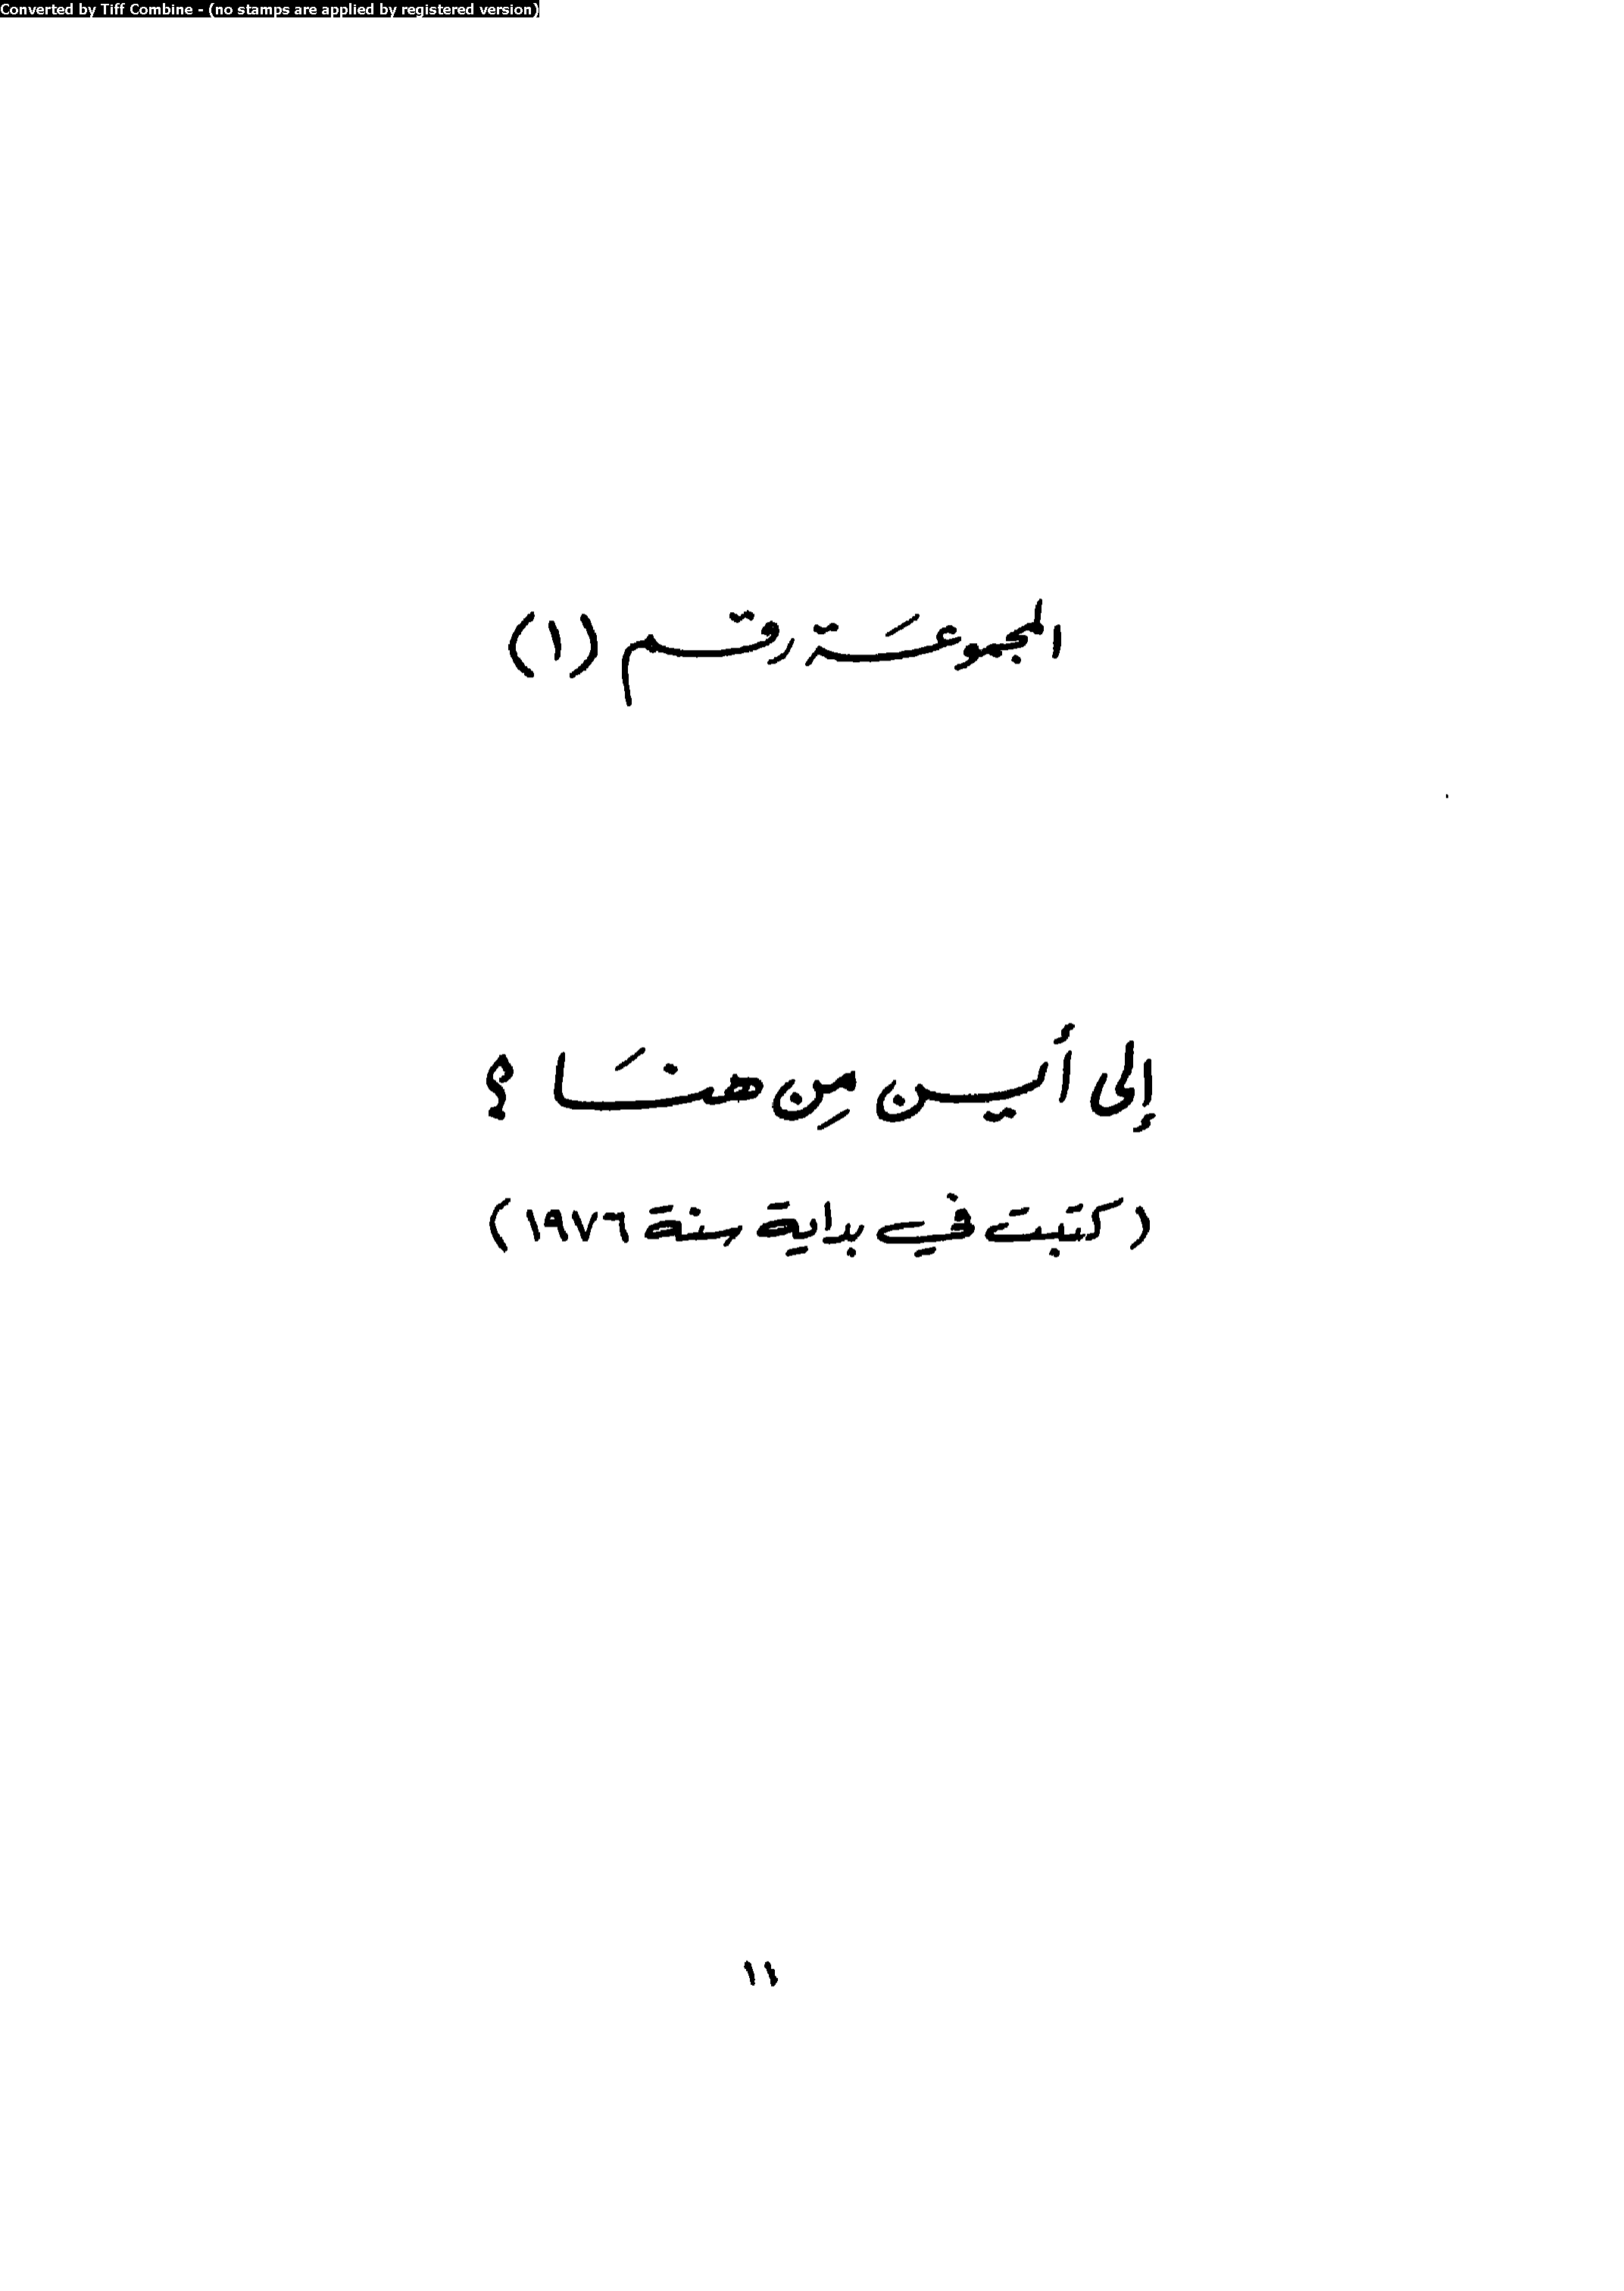 Converted by Tiff Combine - (no stamps are applied by registered version)
المجموعَة رقم (١)
إلى أين مِن هنَا ؟
(كتبت في بداية سنة ١٩٧٦)
١١